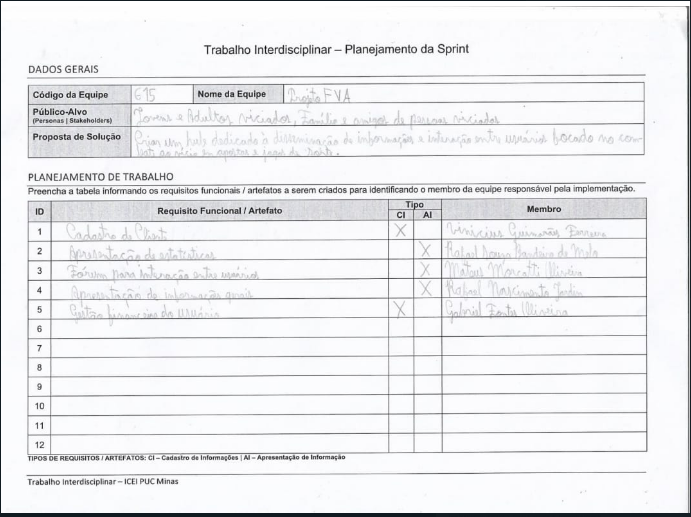 Trabalho Interdisciplinar – Planejamento da Sprint
DADOS GERAIS
Código da Equipe 615 Nome da Equipe Projeto FVA
Público-Alvo (Personas | Stakeholders) Jovens e Adultos viciados, Família e amigos de pessoas viciadas
Proposta de Solução Criar um hub dedicado à disseminação de informações e interação entre usuários focado no com
bate ao vício em apostas e jogos de
PLANEJAMENTO DE TRABALHO
Preencha a tabela informando os requisitos funcionais / artefatos a serem criados para identificando o membro da equipe responsável pela implementação.
ID Requisito Funcional / Artefato Tipo CI AI Membro
1 Cadastro de X Vinicius Guimarães Ferreira
2 Apresentação de estatísticas X Rafael Souza Bandeira de Melo
3 Fórum para interação entre usuários X Mateus Oliveira
4 Apresentação de informações gerais X Rafael Nascimento Jardim
5 Gestão financeira do usuário X Gabriel Oliveira
6
7
8
9
10
11
12
TIPOS DE REQUISITOS / ARTEFATOS: CI – Cadastro de Informações | AI – Apresentação de Informação
Trabalho Interdisciplinar – ICEI PUC Minas